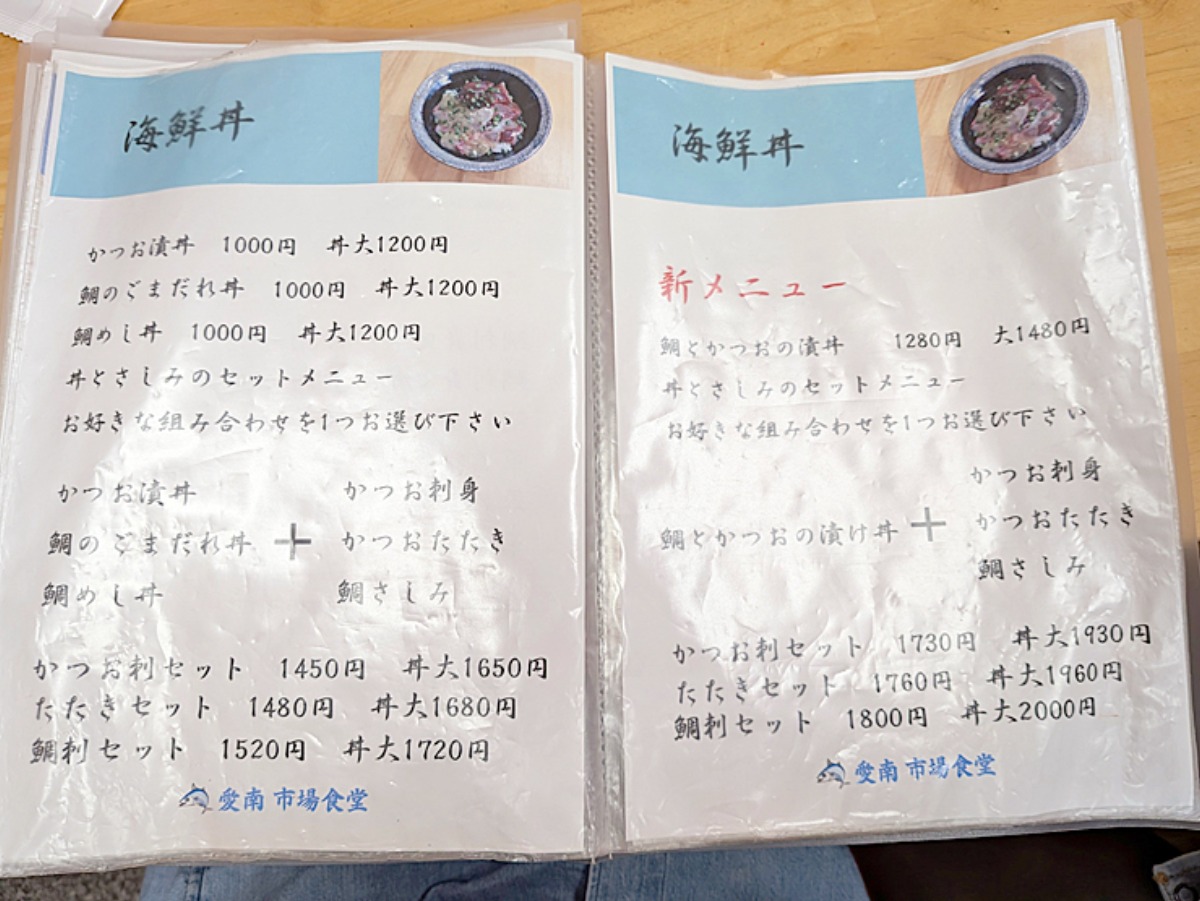 海鮮丼
かつお漬丼 1000円 丼大1200円
鯛のごまだれ丼 1000円 丼大1200円
鯛めし丼 1000円 丼大1200円
丼とさしみのセットメニュー
お好きな組み合わせを1つお選び下さい
かつお漬丼 かつお刺身
鯛のごまだれ丼 + かつおたたき
鯛めし丼 鯛さしみ
かつお刺セット 1450円 丼大1650円
たたきセット 1480円 丼大1680円
鯛刺セット 1520円 丼大1720円
愛南 市場食堂
海鮮丼
新メニュー
鯛とかつおの漬丼 1280円 大1480円
丼とさしみのセットメニュー
お好きな組み合わせを1つお選び下さい
かつお刺身
鯛とかつおの漬け丼 + かつおたたき
鯛さしみ
かつお刺セット 1730円 丼大1930円
たたきセット 1760円 丼大1960円
鯛刺セット 1800円 丼大2000円
愛南 市場食堂